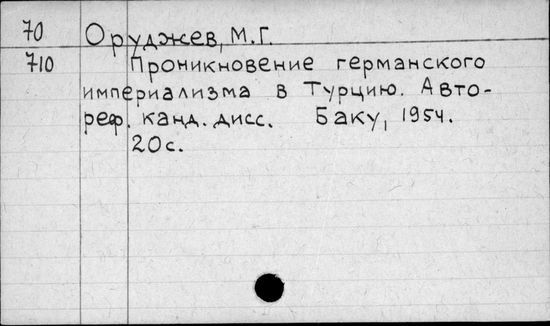 70 Оруджев, М.Г.
710 Проникновение германского
империализма в Турцию. Авто-
реф. канд. дисс. Баку, 1954.
20с.